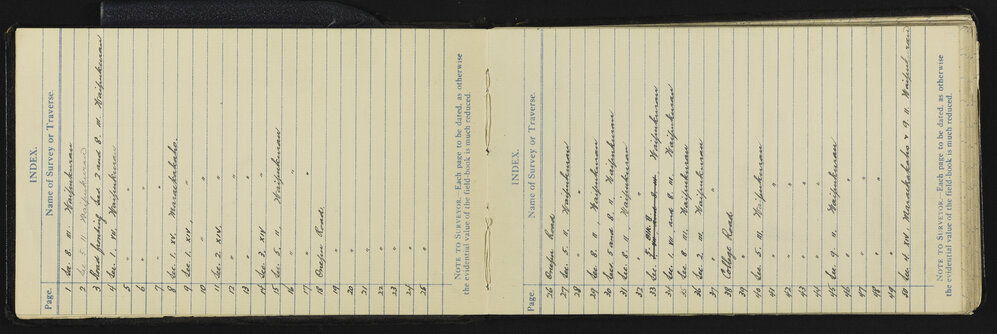 INDEX.
Page. Name of Survey or Traverse.
1 Sec. 8. III. Waipukurau
2 Sec. 5. II Waipukurau
3 Road fronting Secs 2 and 8. III. Waipukurau
4 Sec. 1. VII. Waipukurau
5 " "
6 " "
7. " "
8 Sec. 1. XV. Marakakaho.
9 Sec. 1. XV. "
10 " "
11 Sec. 2. XIV. "
12 " "
13 " "
14 Sec. 3. XIV "
15 Sec. 5. II. Waipukurau
16 " "
17 " "
18 Cooper Road.
19 "
20 "
21 "
22 "
23 "
24 "
25 "
NOTE TO SURVEYOR.—Each page to be dated, as otherwise
the evidential value of the field-book is much reduced.
INDEX.
Page. Name of Survey or Traverse.
26 Cooper Road
27 Sec. 5. II. Waipukurau
28 " "
29 Sec. 8. II. Waipukurau
30 Secs. 5 and 8. II. Waipukurau
31 Sec. 8. II., Waipukurau
32 " "
33 Waipukurau
34 Sec. 1. VII and 8. III. Waipukurau
35 Sec 8 III. Waipukurau
36 Sec. 2. III. Waipukurau
37 " "
38 College Road
39 "
40 Sec. 5. III. Waipukurau
41 " "
42 " "
43 " "
44 " "
45 Sec. 9. II. Waipukurau
46 " "
47 " "
48 " "
49 " "
50 Sec. 4. XIV. Marakakaho & 9. II. Waipukurau
NOTE TO SURVEYOR.—Each page to be dated, as otherwise
the evidential value of the field-book is much reduced.